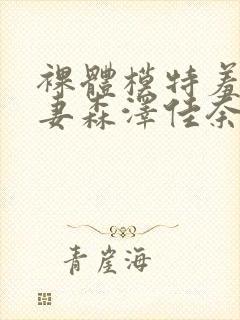 裸體模特羞
妻森澤佳奈
青崖海